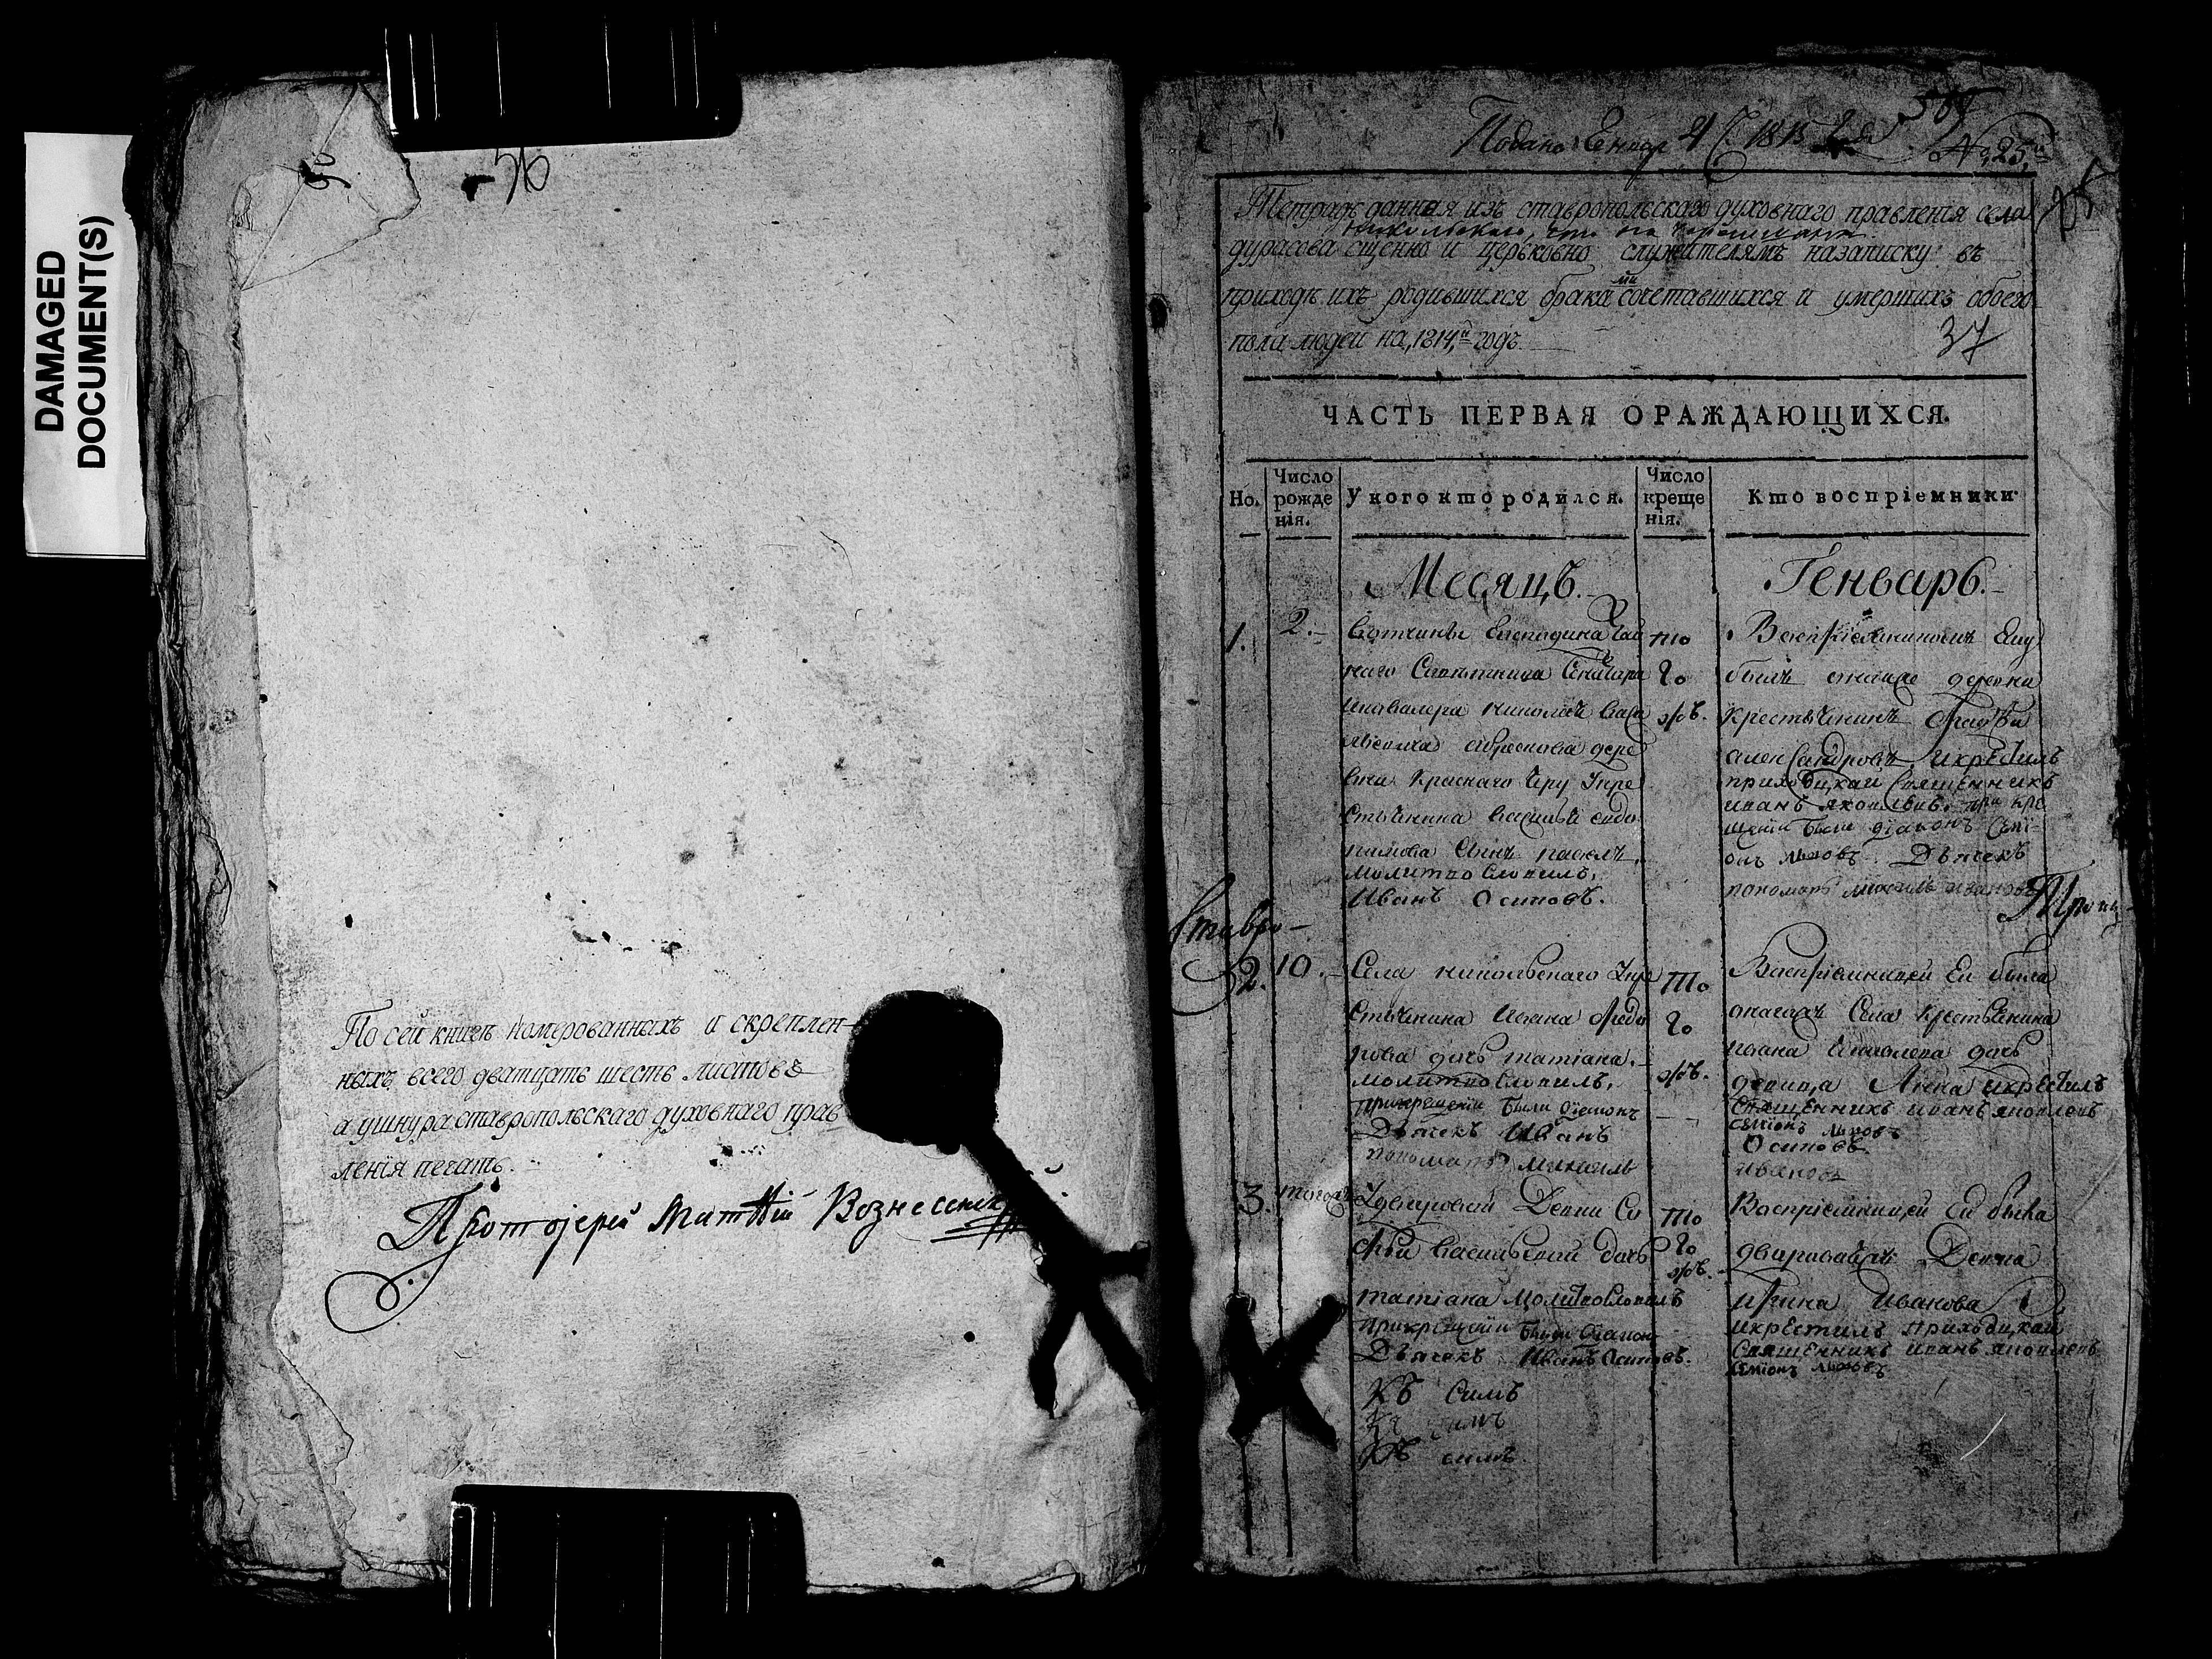 DAMAGED
DOCUMENT(S)
36
По сей книгѣ номерованныхъ и скреплен-
ныхъ всего дватцать шесть листовъ
а ушнура ставропольскаго духовнаго прав
ленія печать.
Протоіерей Матѳій Вознесенск
Подано Генвар 21 1815 года
№ 25й
Тетрадь данная изъ ставропольскаго духовнаго правленія села
Никольскаго, что на Черемшанѣ
дурасова сщенно и церьковно служителямъ назаписку въ
ми
приходѣ ихъ родившихся брака сочетавшихся и умершихъ обоего
пола людей на, 1814,й годъ.
37
ЧАСТЬ ПЕРВАЯ О РАЖДАЮЩИХСЯ.
Но.
Число
рожде
нія.
У кого кто родился.
Число
креще
нія.
Кто воспріемники
Месяцъ.
Генварь.
1.
2.
Вотчины Господина Тай
наго Советника Сенатора
Икавалера николая васи
дере
вни Краснаго Яру Укре
стьянина Василья
сынъ павелъ.
молитво словилъ,
Иванъ Осиповъ.
то
го
жъ.
Воспріемникомъ Ему
былъ оной же деревни
крестьянинъ
александровъ икрестилъ
приходцкаи Священникъ
иванъ яковлевъ. при кре
щеніи были діаконъ Семі-
онъ львовъ Дьячекъ
пономарь михаилъ ивановъ
Ставро-
Троиц-
2.
10.
Села никольскаго Укре
стьянина Ивана Федо
рова дочь татіана.
молитво словилъ,
прикрещеніи были діаконъ
Дьячекъ Иванъ
пономарь михаилъ
то
го
жъ.
Воспріемницей Ей была
оногожъ Села крестьянина
Ивана Яковлева дочь
девица Анна икрестилъ
Священникъ иванъ яковлевъ
семіонъ львовъ
Осиповъ
ивановъ
3.
тогожъ
Удворовой Девки Со
фьи Васильевой дочь
татіана молитвословилъ
прикрещеніи были діакон
Дьячекъ Иванъ Осиповъ.
то
го
жъ.
Воспріемницей Ей была
двороваяжъ Девка
Ирина Иванова
икрестилъ приходцкаи
Священникъ иванъ яковлевъ
семіонъ львовъ
Къ симъ
Къ симъ
Къ симъ